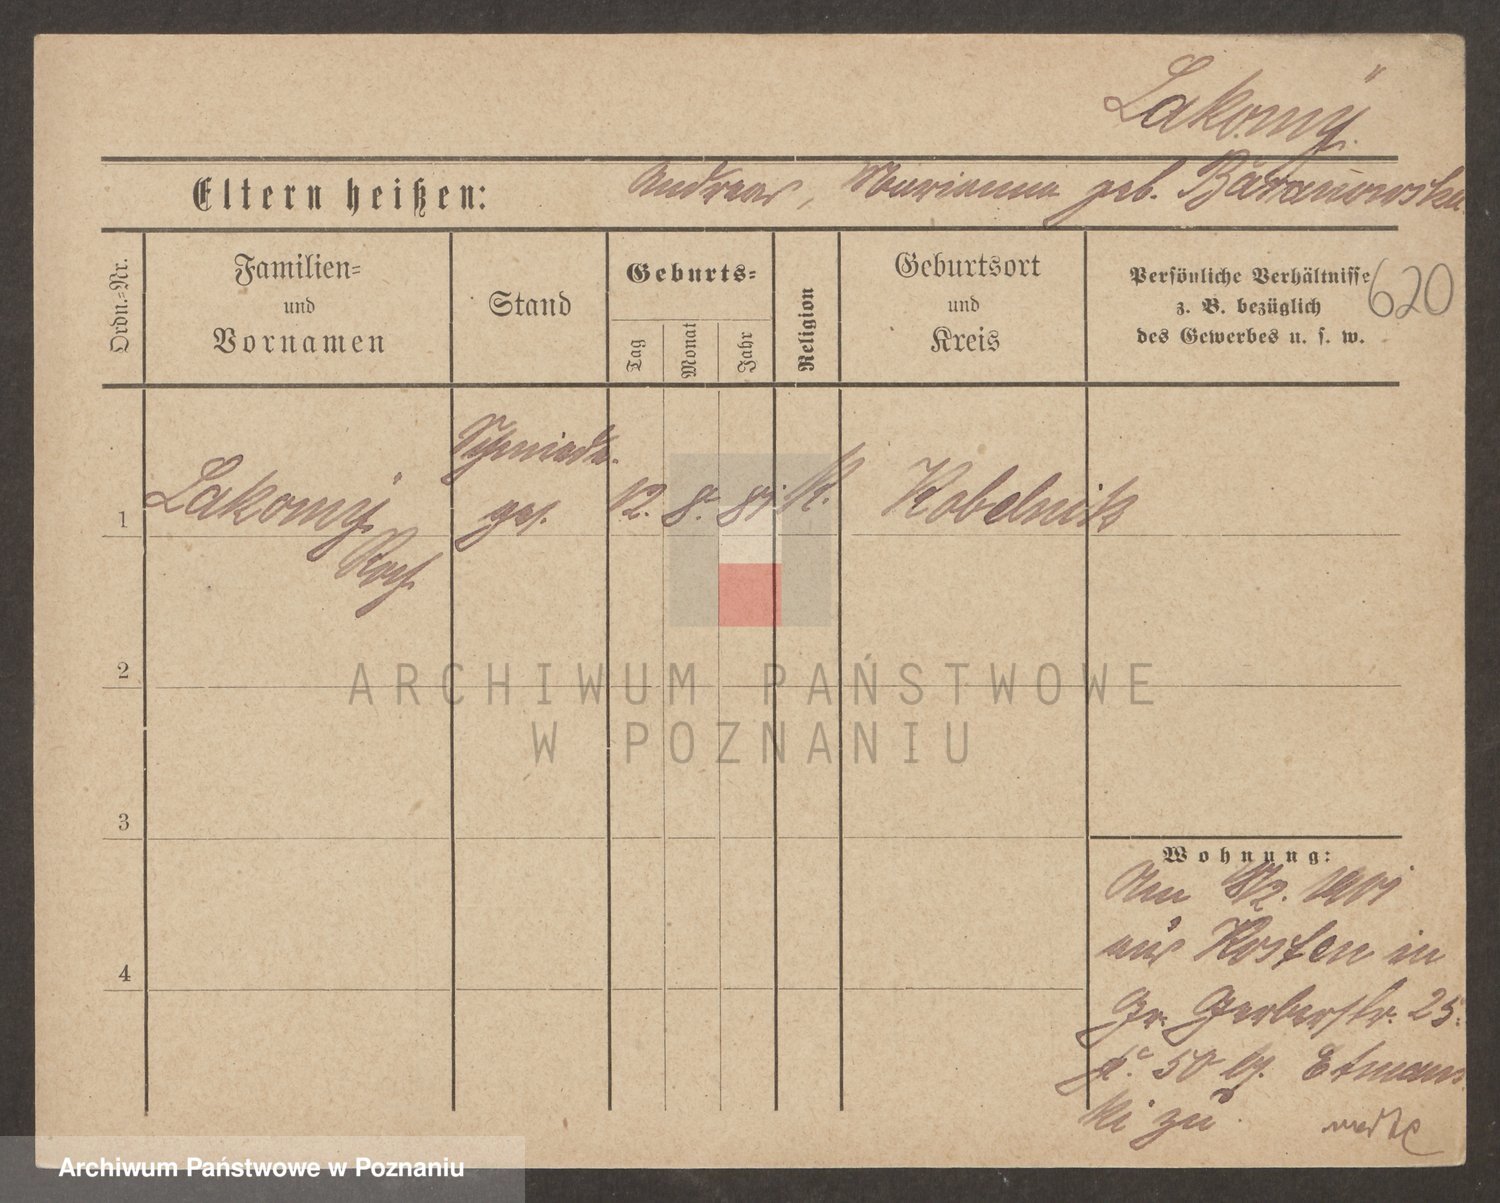 Lakomy
Eltern heißen: Andreas, Marianna geb. Baranowska
Ordn.=Nr.
Familien=
und
Vornamen
Stand
Geburts=
Tag
Monat
Jahr
Religion
Geburtsort
und
Kreis
Persönliche Verhältnisse
z. B. bezüglich
des Gewerbes u. s. w.
620
Schmiede-
1 Lakomy ges. 12. 8. 81. K. Kobelnik
Roch
2
ARCHIWUM PAŃSTWOWE
W POZNANIU
3
4
Wohnung:
Am 1901
aus Kosten in
Gr. Gerberstr. 25.
50 Etmans
ki zu.
Archiwum Państwowe w Poznaniu